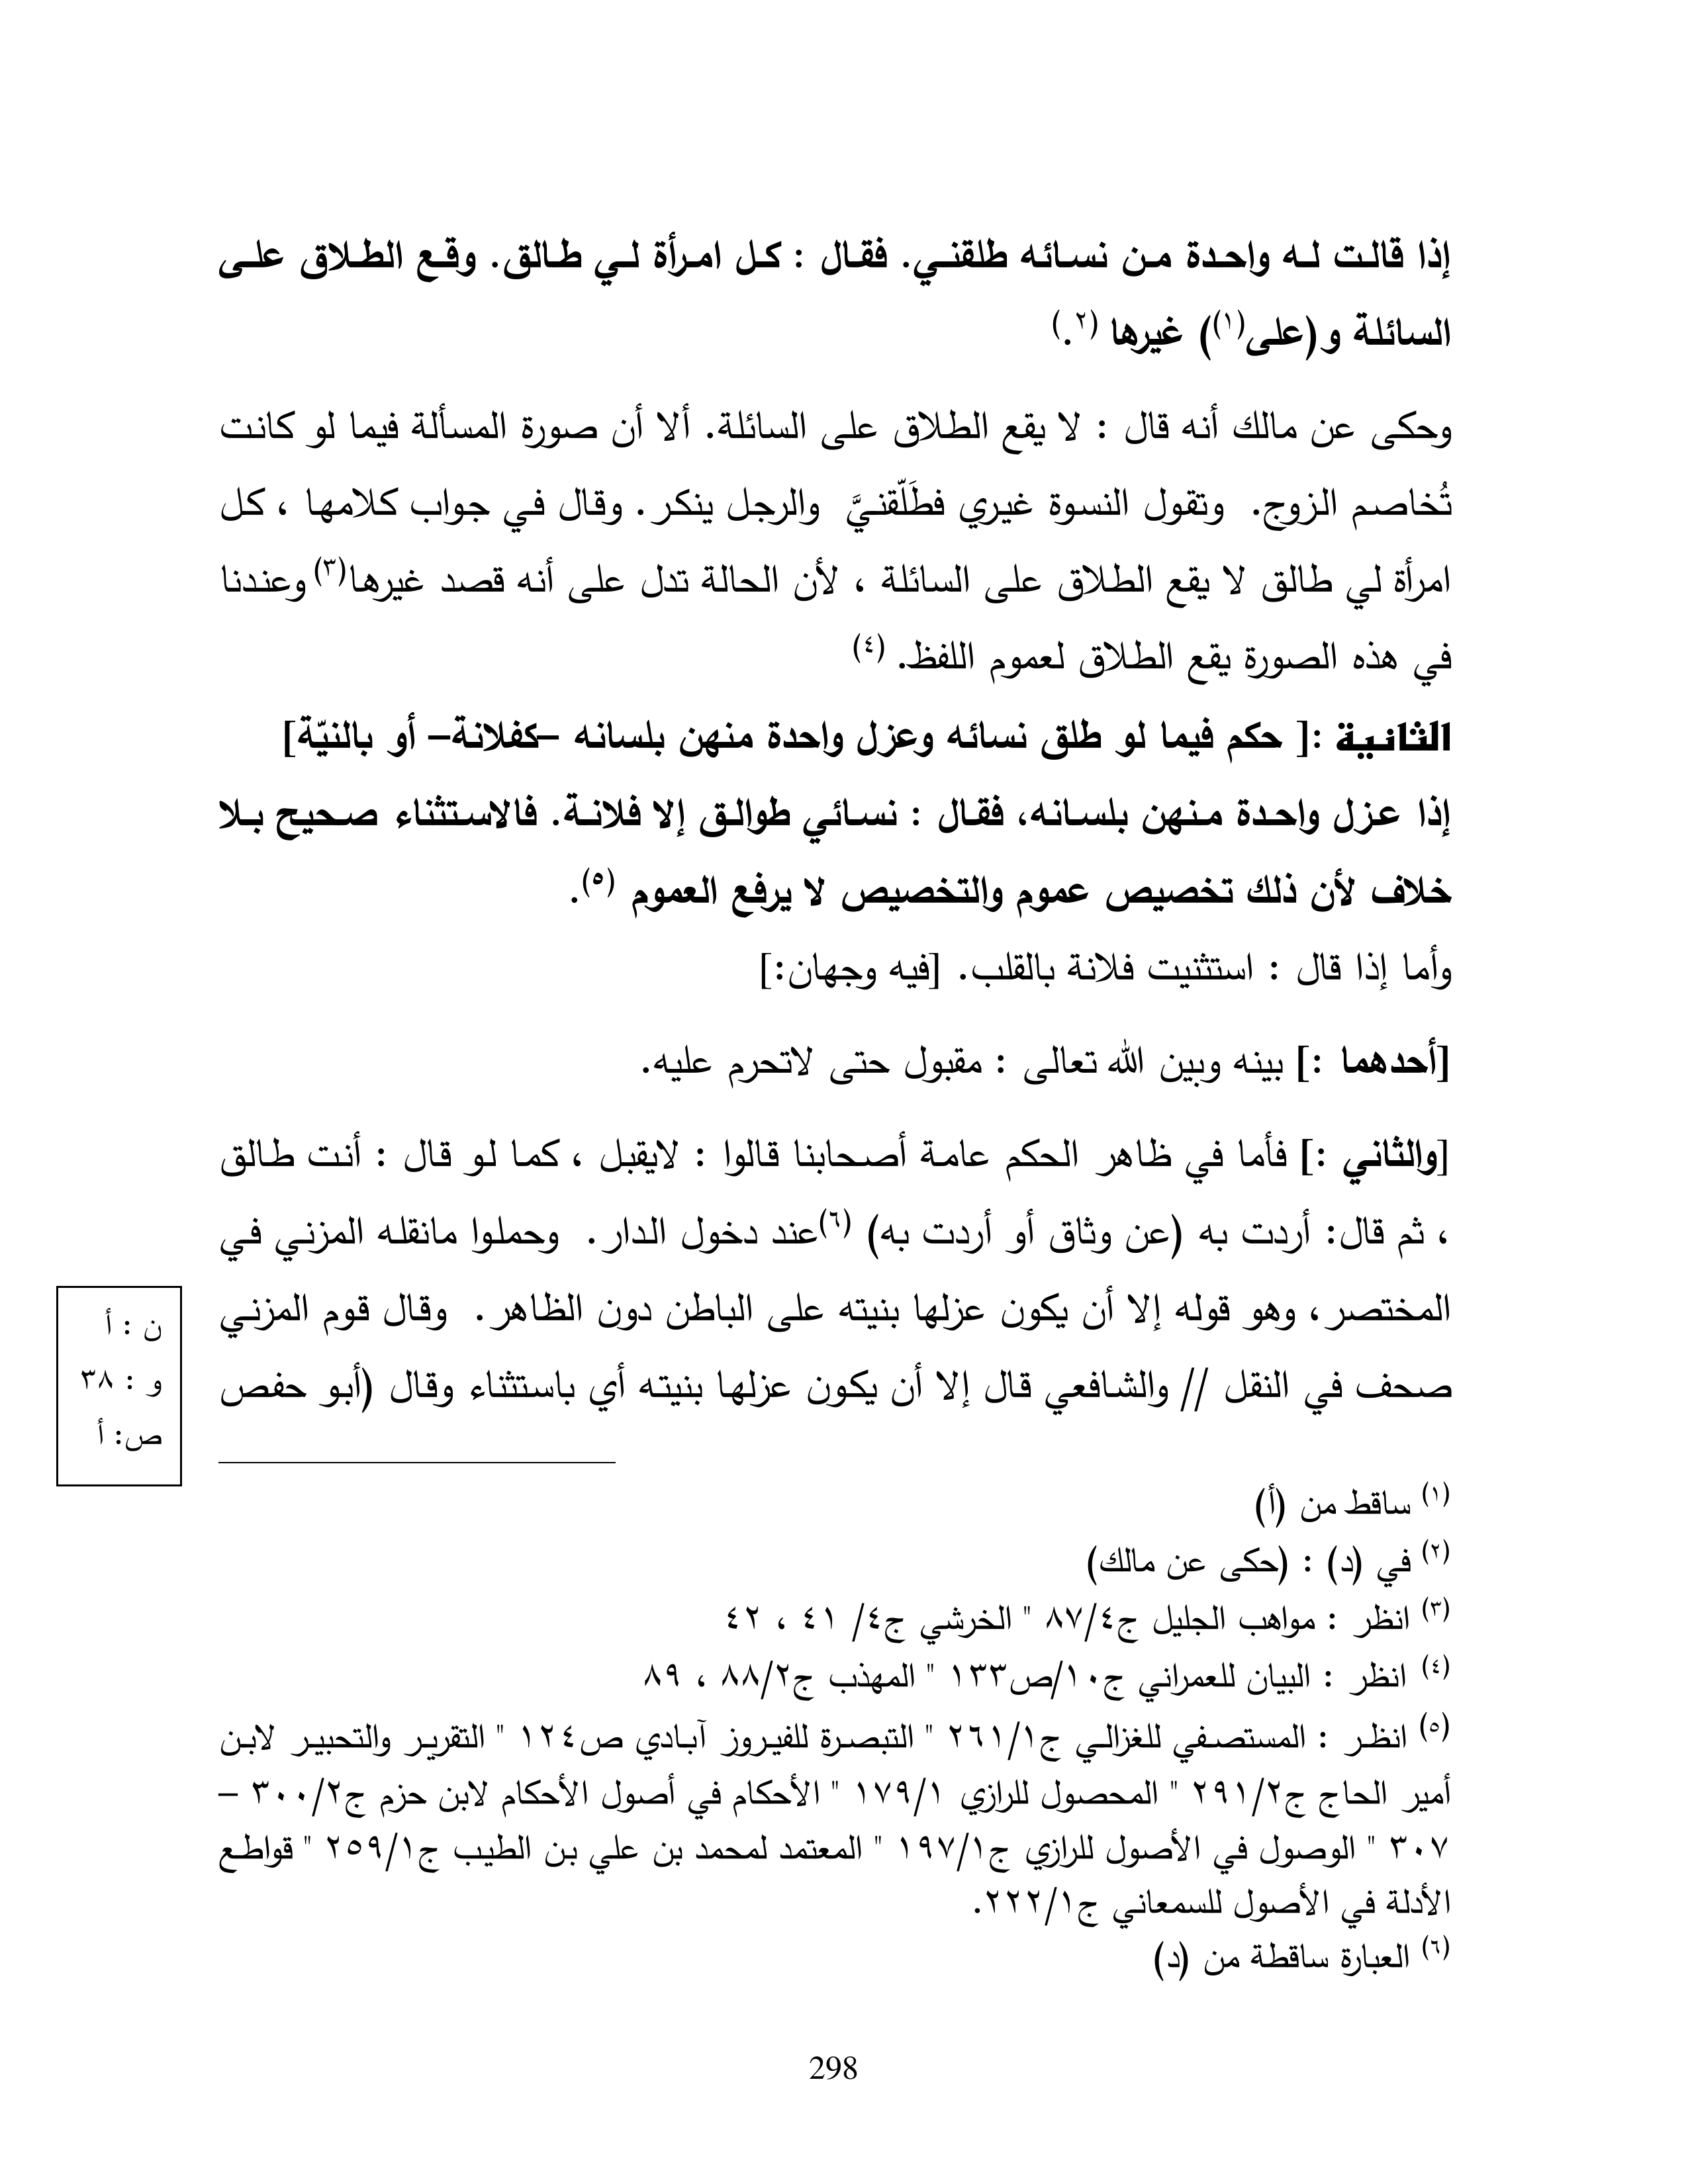 إذا قالت له واحدة من نسائه طلقني. فقال : كل امرأة لي طالق. وقع الطلاق على
السائلة و(على(١)) غيرها (٢).
وحكى عن مالك أنه قال : لا يقع الطلاق على السائلة. ألا أن صورة المسألة فيما لو كانت
تُخاصم الزوج. وتقول النسوة غيري فطَلّقنيَّ والرجل ينكر. وقال في جواب كلامها ، كل
امرأة لي طالق لا يقع الطلاق على السائلة ، لأن الحالة تدل على أنه قصد غيرها(٣) وعندنا
في هذه الصورة يقع الطلاق لعموم اللفظ. (٤)
الثانية :[ حكم فيما لو طلق نسائه وعزل واحدة منهن بلسانه –كفلانة– أو بالنيّة]
إذا عزل واحدة منهن بلسانه، فقال : نسائي طوالق إلا فلانة. فالاستثناء صحيح بلا
خلاف لأن ذلك تخصيص عموم والتخصيص لا يرفع العموم (٥).
وأما إذا قال : استثنيت فلانة بالقلب. [فيه وجهان:]
[أحدهما :] بينه وبين الله تعالى : مقبول حتى لاتحرم عليه.
[والثاني :] فأما في ظاهر الحكم عامة أصحابنا قالوا : لايقبل ، كما لو قال : أنت طالق
، ثم قال: أردت به (عن وثاق أو أردت به) (٦)عند دخول الدار. وحملوا مانقله المزني في
المختصر، وهو قوله إلا أن يكون عزلها بنيته على الباطن دون الظاهر. وقال قوم المزني
صحف في النقل // والشافعي قال إلا أن يكون عزلها بنيته أي باستثناء وقال (أبو حفص
ن : أ
و : ٣٨
ص: أ
(١) ساقط من (أ)
(٢) في (د) : (حكى عن مالك)
(٣) انظر : مواهب الجليل ج٨٧/٤ " الخرشي ج٤/ ٤١ ، ٤٢
(٤) انظر : البيان للعمراني ج١٠/ص١٣٣ " المهذب ج٨٨/٢ ، ٨٩
(٥) انظر : المستصفي للغزالي ج٢٦١/١ " التبصرة للفيروز آبادي ص١٢٤ " التقرير والتحبير لابن
أمير الحاج ج٢٩١/٢ " المحصول للرازي ١٧٩/١ " الأحكام في أصول الأحكام لابن حزم ج٣٠٠/٢ –
٣٠٧ " الوصول في الأصول للرازي ج١٩٧/١ " المعتمد لمحمد بن علي بن الطيب ج٢٥٩/١ " قواطع
الأدلة في الأصول للسمعاني ج٢٢٢/١.
(٦) العبارة ساقطة من (د)
298